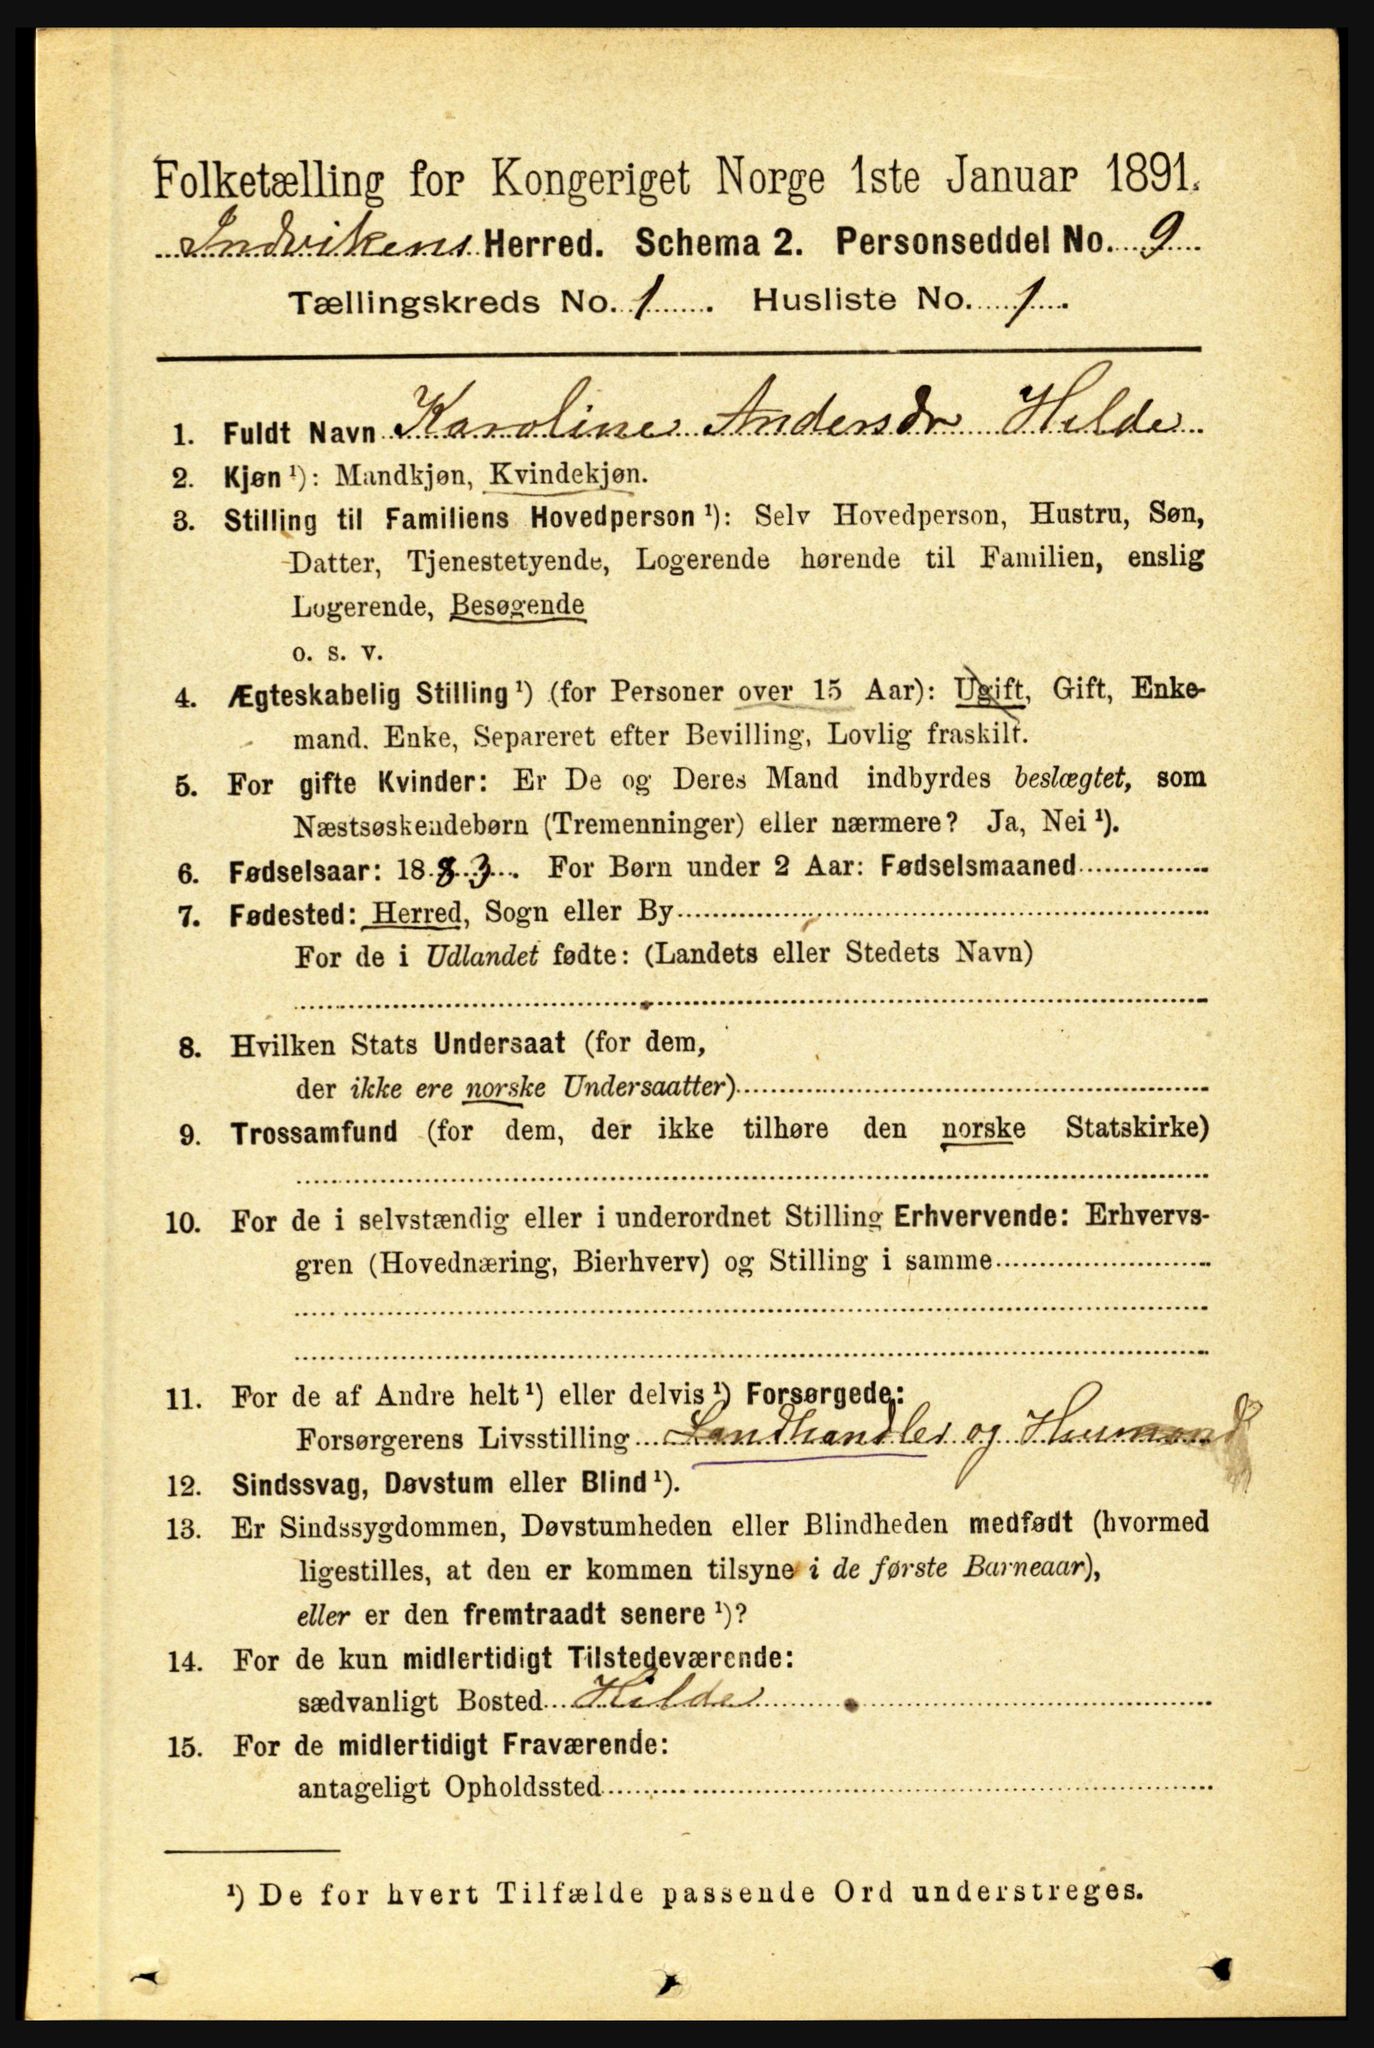 Folketælling for Kongeriget Norge 1ste Januar 1891.
Indvikens Herred. Schema 2. Personseddel No. 9
Tællingskreds No. 1. Husliste No. 1.
1. Fuldt Navn Karoline Andersdr Hilde
2. Kjøn ¹): Mandkjøn, Kvindekjøn.
3. Stilling til Familiens Hovedperson ¹): Selv Hovedperson, Hustru, Søn,
Datter, Tjenestetyende, Logerende hørende til Familien, enslig
Logerende, Besøgende
o. s. v.
4. Ægteskabelig Stilling ¹) (for Personer over 15 Aar): Ugift, Gift, Enke-
mand. Enke, Separeret efter Bevilling, Lovlig fraskilt.
5. For gifte Kvinder: Er De og Deres Mand indbyrdes beslægtet, som
Næstsøskendebørn (Tremenninger) eller nærmere? Ja, Nei ¹).
6. Fødselsaar: 1883. For Børn under 2 Aar: Fødselsmaaned
7. Fødested: Herred, Sogn eller By
For de i Udlandet fødte: (Landets eller Stedets Navn)
8. Hvilken Stats Undersaat (for dem,
der ikke ere norske Undersaatter)
9. Trossamfund (for dem, der ikke tilhøre den norske Statskirke)
10. For de i selvstændig eller i underordnet Stilling Erhvervende: Erhvervs-
gren (Hovednæring, Bierhverv) og Stilling i samme
11. For de af Andre helt ¹) eller delvis ¹) Forsørgede:
Forsørgerens Livsstilling Landhandler og Husmand
12. Sindssvag, Døvstum eller Blind ¹).
13. Er Sindssygdommen, Døvstumheden eller Blindheden medfødt (hvormed
ligestilles, at den er kommen tilsyne i de første Barneaar),
eller er den fremtraadt senere ¹)?
14. For de kun midlertidigt Tilstedeværende:
sædvanligt Bosted Hilde
15. For de midlertidigt Fraværende:
antageligt Opholdssted
¹) De for hvert Tilfælde passende Ord understreges.